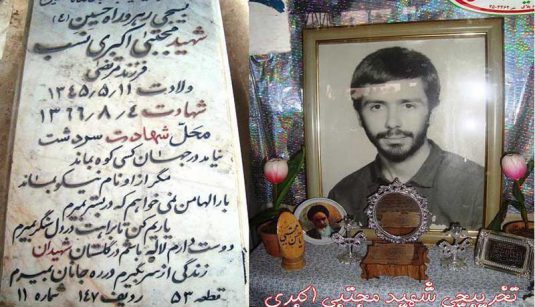 بسیجی رهرو راه حسین (ع)
شهید مجتبی اکبری نسب
فرزند مرتضی
ولادت ۱۳۴۵٫۵٫۱۱
شهادت ۱۳۶۶٫۸٫۴
محل شهادت سردشت
نیامد در جهان کسی کو بماند
مگر از او نام نیکو بماند
بار الها من نمی خواهم که در بستر بمیرم
یاریم کن تا براهت در دل سنگر بمیرم
دوست دارم لاله باشم در گلستان شهیدان
زندگی از سر بگیرم در ره جانان بمیرم
قطعه ۵۳ ردیف ۱۴۷ شماره ۱۱
تخریبچی شهید مجتبی اکبری